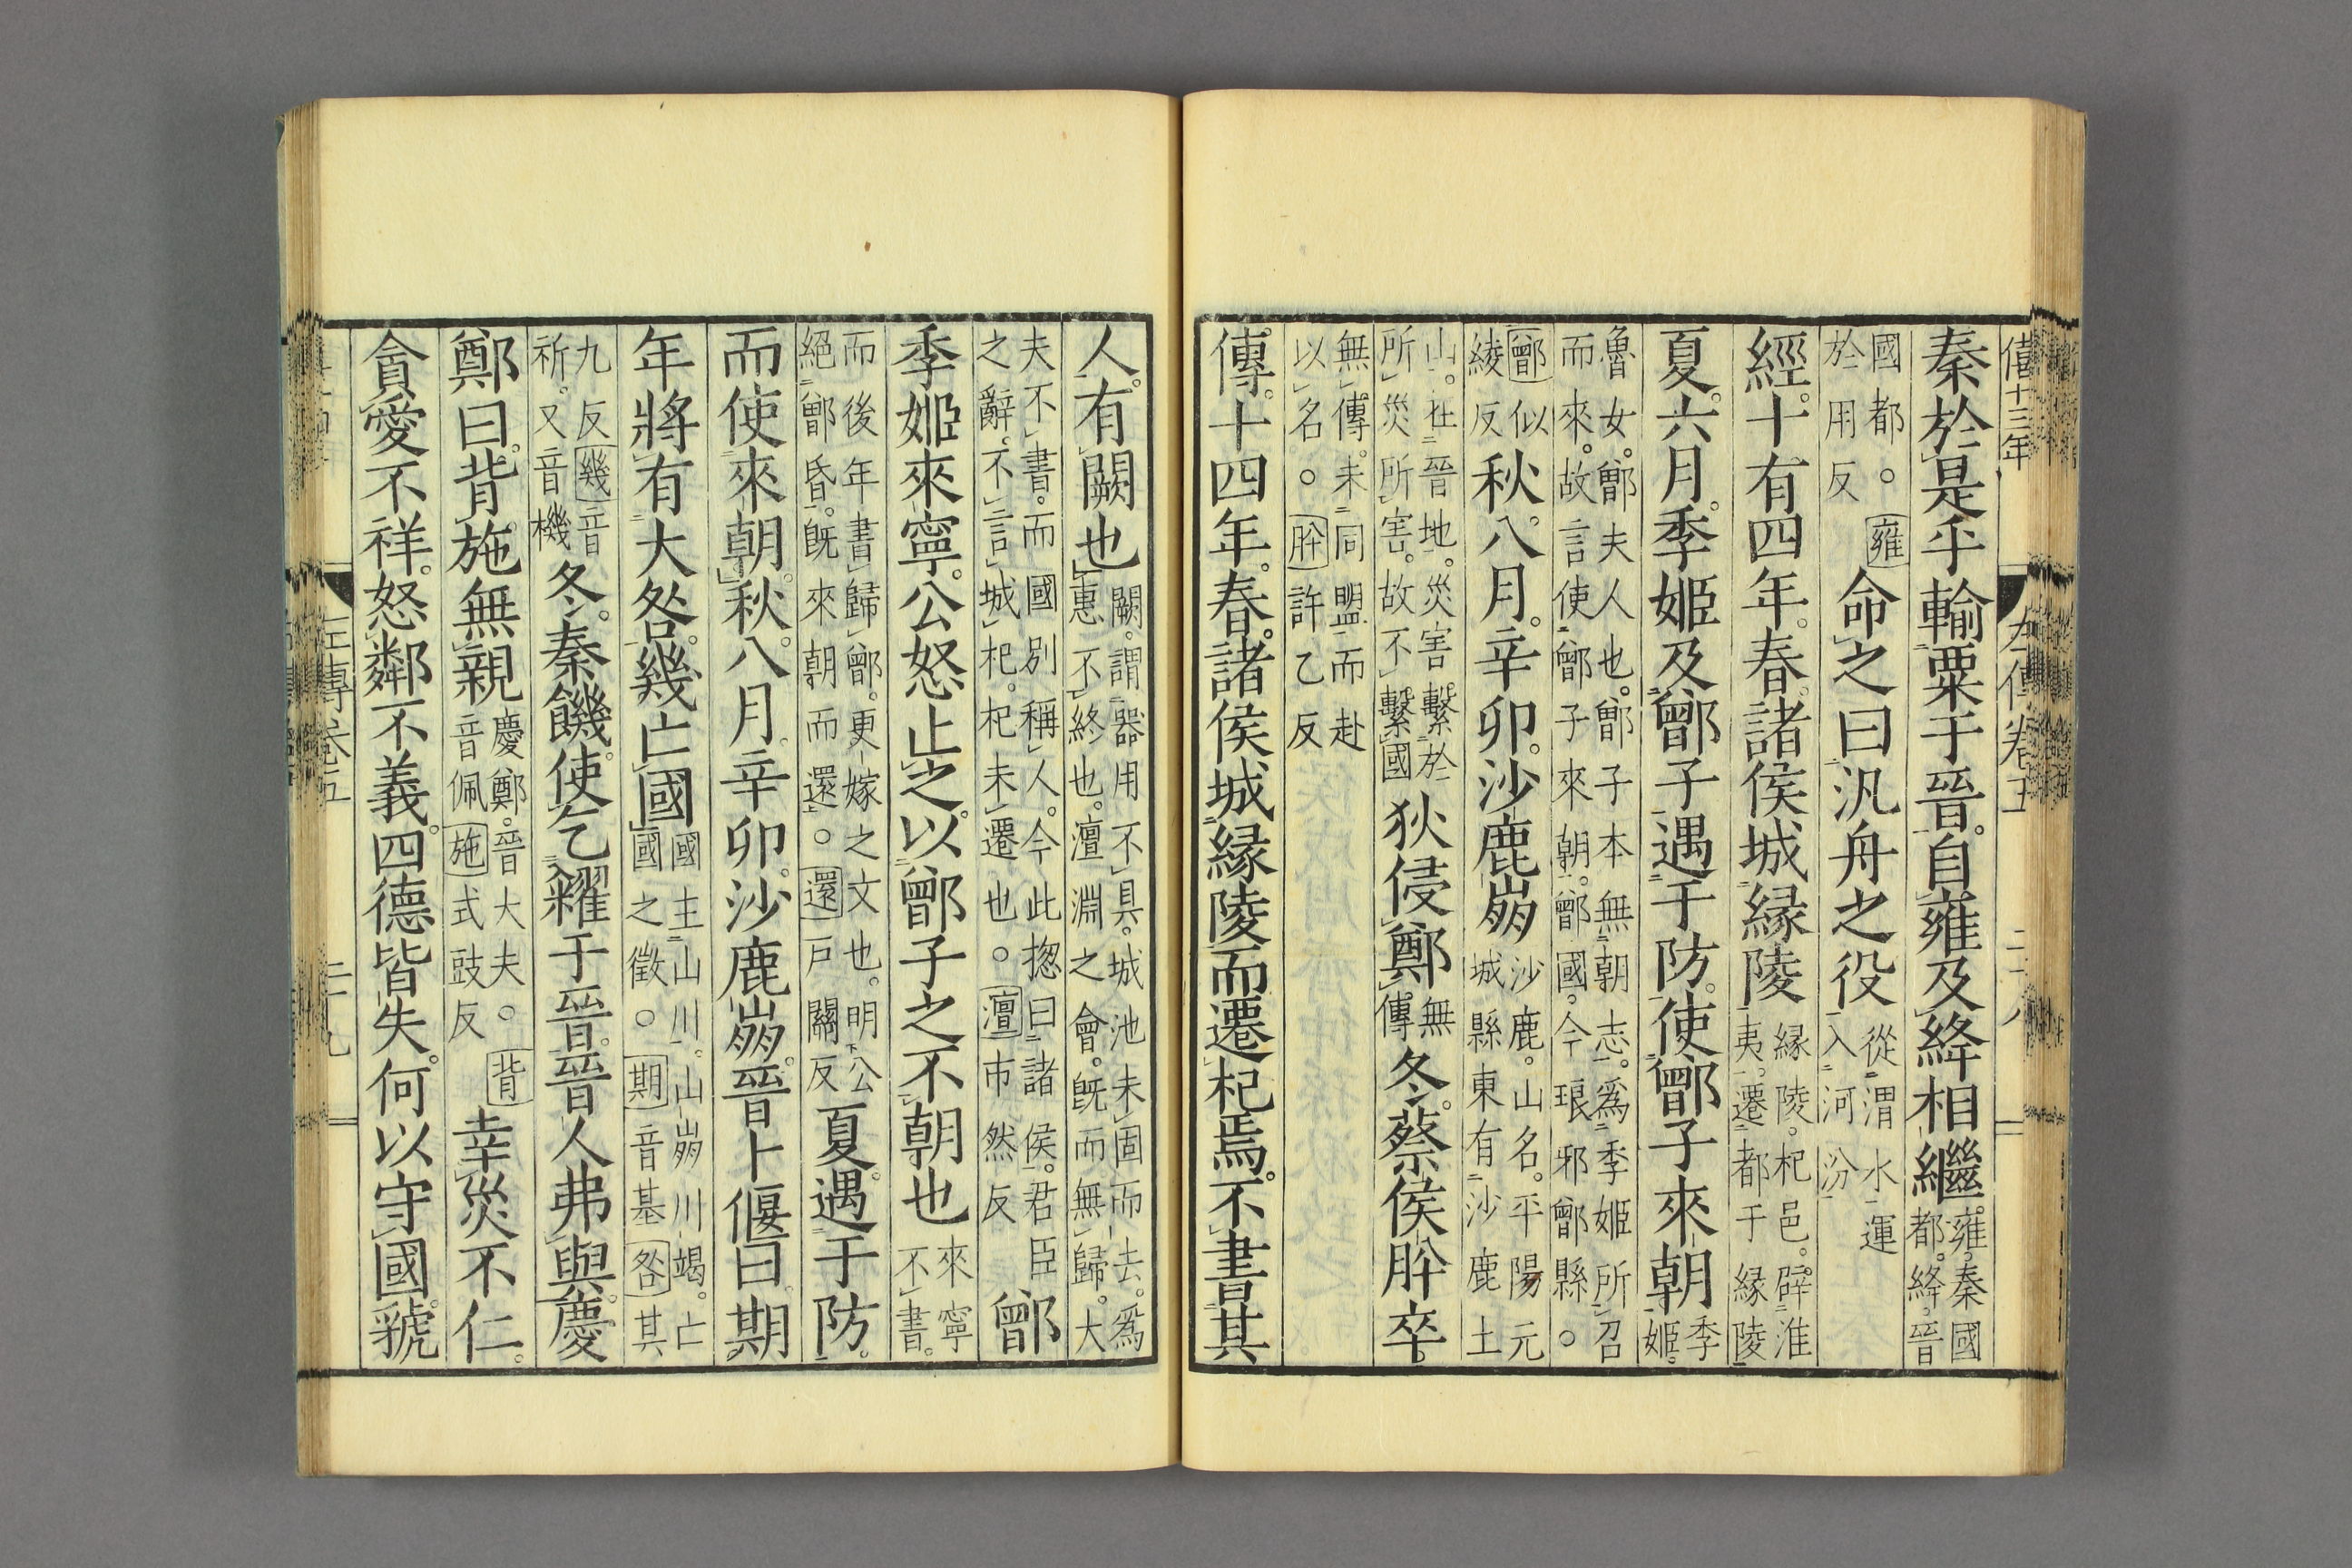 僖十三年　左傳卷五　二十八
秦於是乎輸粟于晉。自雍及絳相繼。雍。秦國都。絳。晉
國都。雍於用反命之曰汎舟之役從渭水運入河汾
經。十有四年。春。諸侯城縁陵縁陵。杞邑。辟淮夷。遷都于縁陵
夏。六月。季姬及鄫子遇于防。使鄫子來朝季姬。
魯女。鄫夫人也。鄫子本無朝志。爲季姬所召而來。故言使鄫子來朝。鄫國。今琅邪鄫縣。
鄫似綾反秋。八月。辛卯。沙鹿崩沙鹿。山名。平陽元城縣東有沙鹿土
山。在晉地。災害繫於所災所害。故不繫國狄侵鄭。無傳冬。蔡侯肸卒。
無傳。未同盟而赴以名。肸許乙反
傳。十四年。春。諸侯城縁陵而遷杞焉。不書其
人。有闕也闕。謂器用不具。城池未固而去。爲惠不終也。澶淵之會。既而無歸。大
夫不書。而國別稱人。今此揔曰諸侯。君臣之辭。不言城杞。杞未遷也。澶市然反鄫
季姬來寧。公怒止之。以鄫子之不朝也來寧不書。
而後年書歸鄫。更嫁之文也。明公絕鄫昏。既來朝而還。還戸關反夏。遇于防。
而使來朝。秋。八月。辛卯。沙鹿崩。晉卜偃曰。期
年將有大咎。幾亡國國主山川。山崩川竭。亡國之徵。期音基咎其
九反幾音祈。又音機冬。秦饑。使乞糴于晉。晉人弗與。慶
鄭曰。背施。無親慶鄭。晉大夫。背音佩施式豉反幸災不仁。
貪愛不祥。怒鄰不義。四德皆失。何以守國。虢
左傳卷五　二十九